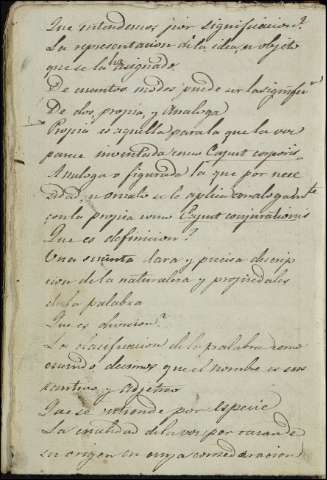 Que entendemos por significacion?
La representacion de la idea, u objeto
que se le ha asignado
De cuantos modos puede ser la signific.ⁿ
De dos, propia, y Analoga
Propia es aquella para la que la voz
parece inventada como Caput corporis
Analoga o figurada la que por nece
sidad, u ornato se le aplica analogada.te
con la propia como Caput conjurationis
Que es definicion?
Una cuenta clara y precisa descrip
cion de la naturaleza y propiedades
de la palabra
Que es division?
La clasificacion de la palabra como
cuando decimos que el nombre es sus
tantivo y Adjetivo
Que se entiende por especie
La cualidad de la voz por razon de
su origen en cuya consideracion